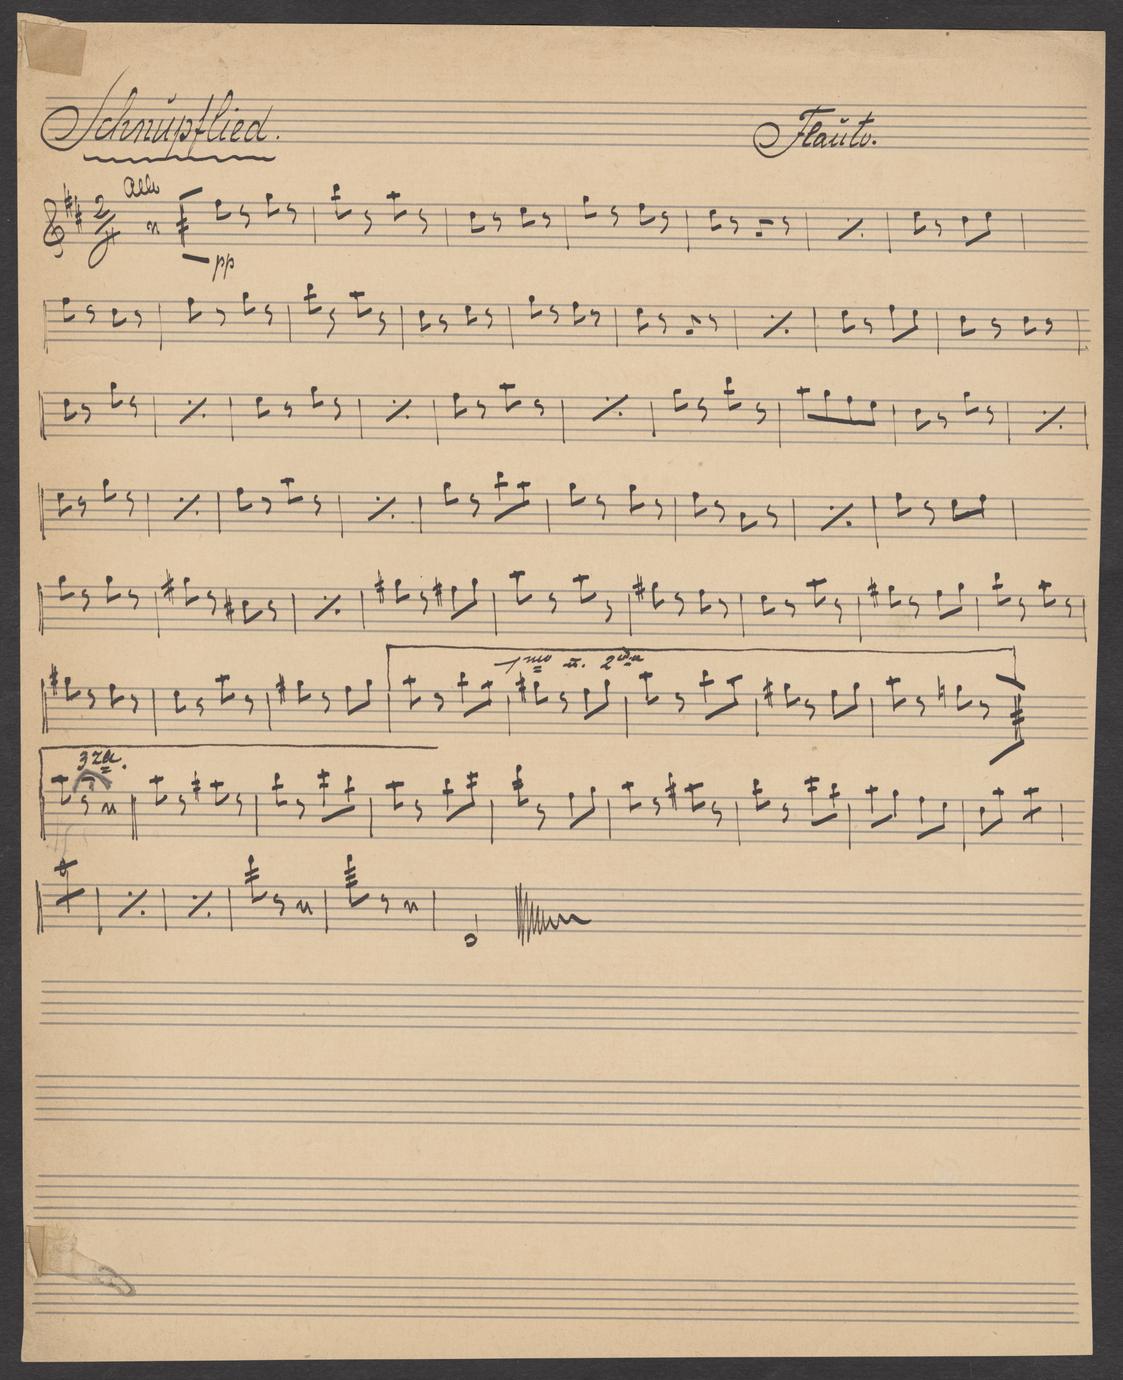 Schnupflied. Flauto.
Allo
2/4
pp
1mo u. 2do
3za.